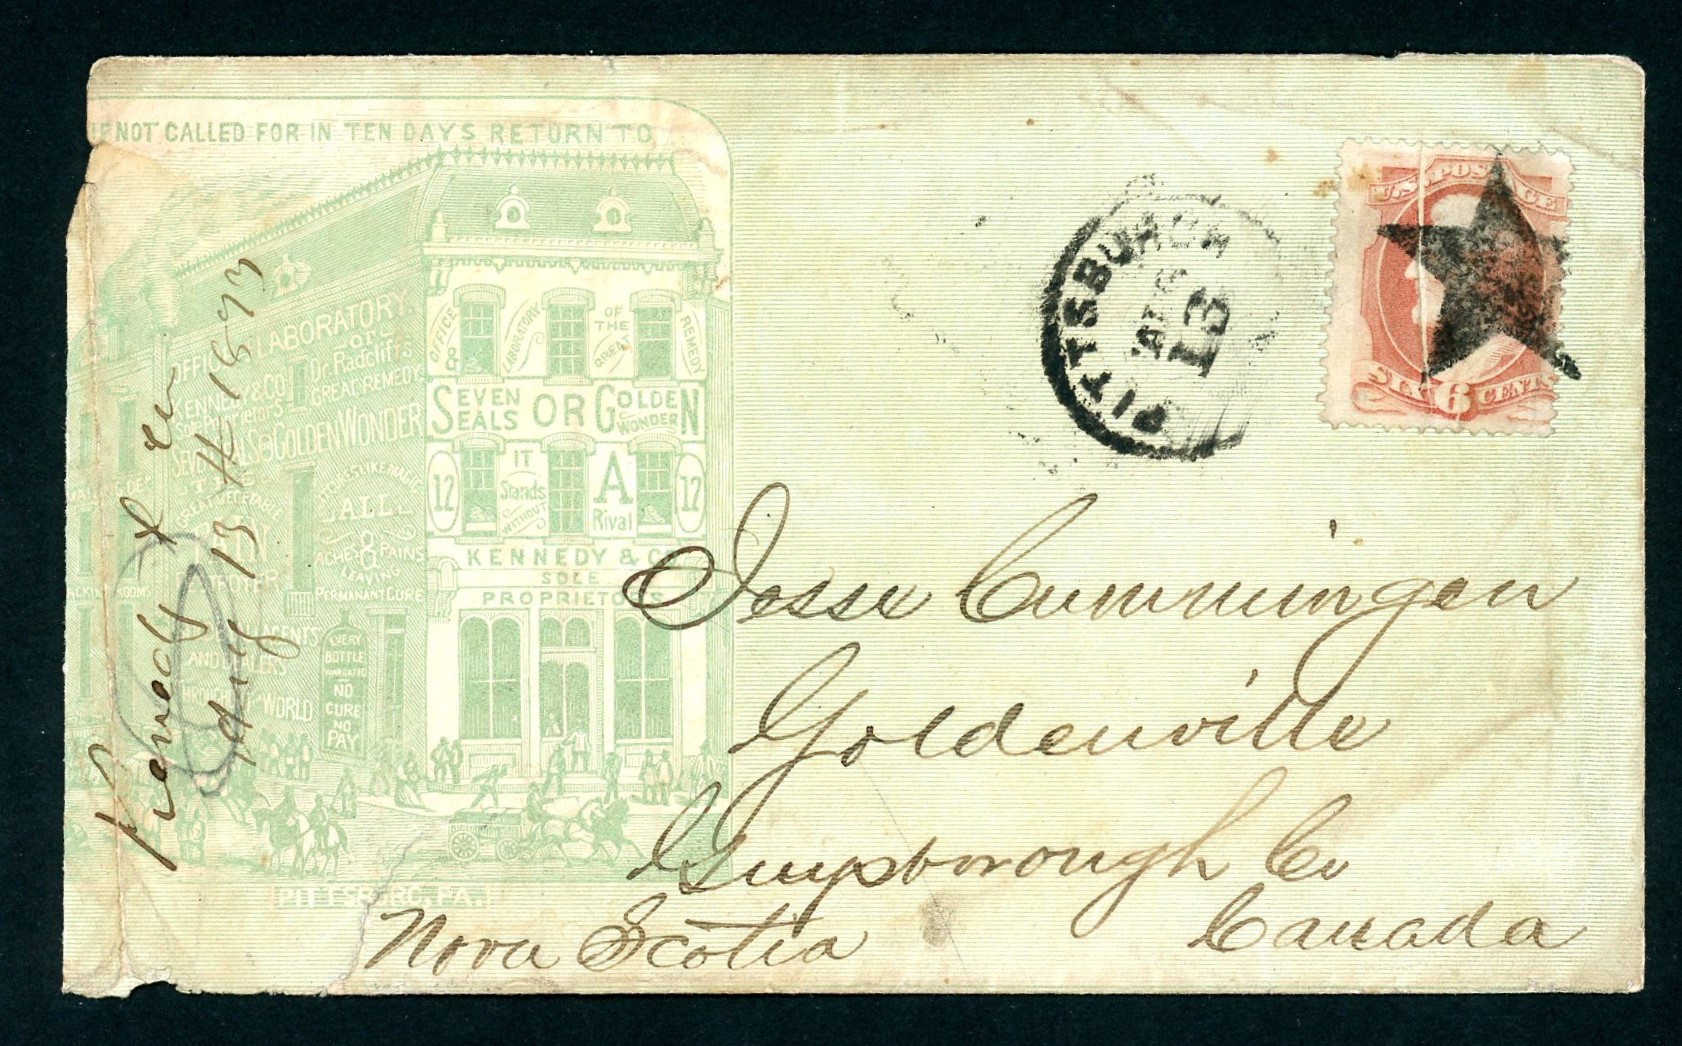 IF NOT CALLED FOR IN TEN DAYS RETURN TO
OFFICE & LABORATORY
OF
Dr. Radcliff's
GREAT REMEDY
KENNEDY & CO
Sole Proprietors
SEVEN SEALS OR GOLDEN WONDER
THE
GREAT VEGETABLE
PAIN
CURES LIKE MAGIC
ALL
ACHES & PAINS
LEAVING
PERMANANT CURE
PACKING ROOMS
AGENTS
AND DEALERS
THROUGHOUT THE WORLD
EVERY
BOTTLE
WARRANTED
NO
CURE
NO
PAY
OFFICE & LABORATORY OF THE GREAT REMEDY
SEVEN SEALS OR GOLDEN WONDER
12 IT Stands WITHOUT A Rival 12
KENNEDY & CO
SOLE
PROPRIETORS
PITTSBURG, PA.
Kennedy & Co
Aug 13th 1873
PITTSBURGH
AUG
13
U.S. POSTAGE
SIX 6 CENTS
Jesse Cummingen
Goldenville
Guysborough Co
Nova Scotia Canada